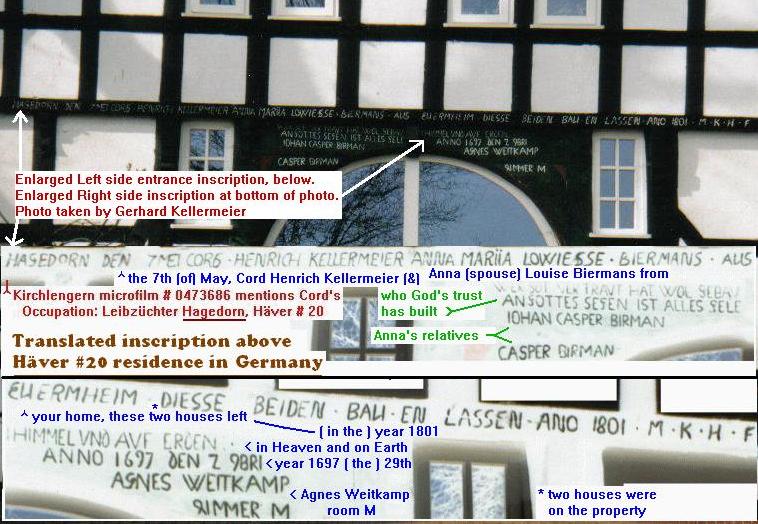 HAGEDORN DEN 7 MEI CORS · HEINRICH KELLERMEIER ANNA MARIIA LOWIESSE · BIERMANS · AUS EUERMHEIM · DIESSE BEIDEN BAU EN LASSEN · ANO 1801 · M · K · H · F
WOL GEBAV
HIMMEL UND AVF ERDEN
AN GOTTES SEGEN IST ALLES GELE
ANNO 1697 DEN Z 9BRI
IOHAN CASPER BIRMAN
AGNES WEITKAMP
CASPER BIRMAN
SIMMER M
Enlarged Left side entrance inscription, below.
Enlarged Right side inscription at bottom of photo.
Photo taken by Gerhard Kellermeier
HAGEDORN DEN 7 MEI CORS · HENRICH KELLERMEIER ANNA MARIIA LOWIESSE · BIERMANS · AUS
^ the 7th (of) May, Cord Henrich Kellermeier (&) Anna (spouse) Louise Biermans from
Kirchlengern microfilm # 0473686 mentions Cord's
Occupation: Leibzüchter Hagedorn, Häver # 20
who God's trust
has built
TRAVT HAT WOL GEBAV
AN GOTTES SEGEN IST ALLES GELE
IOHAN CASPER BIRMAN
Anna's relatives
CASPER BIRMAN
Translated inscription above
Häver #20 residence in Germany
EUERMHEIM · DIESSE BEIDEN · BAU · EN LASSEN · ANO 1801 · M · K · H · F
*
^ your home, these two houses left
( in the ) year 1801
HIMMEL VND AVF ERDEN
< in Heaven and on Earth
ANNO 1697 DEN Z 9BRI
< year 1697 ( the ) 29th
AGNES WEITKAMP
< Agnes Weitkamp
SIMMER M
room M
* two houses were
on the property